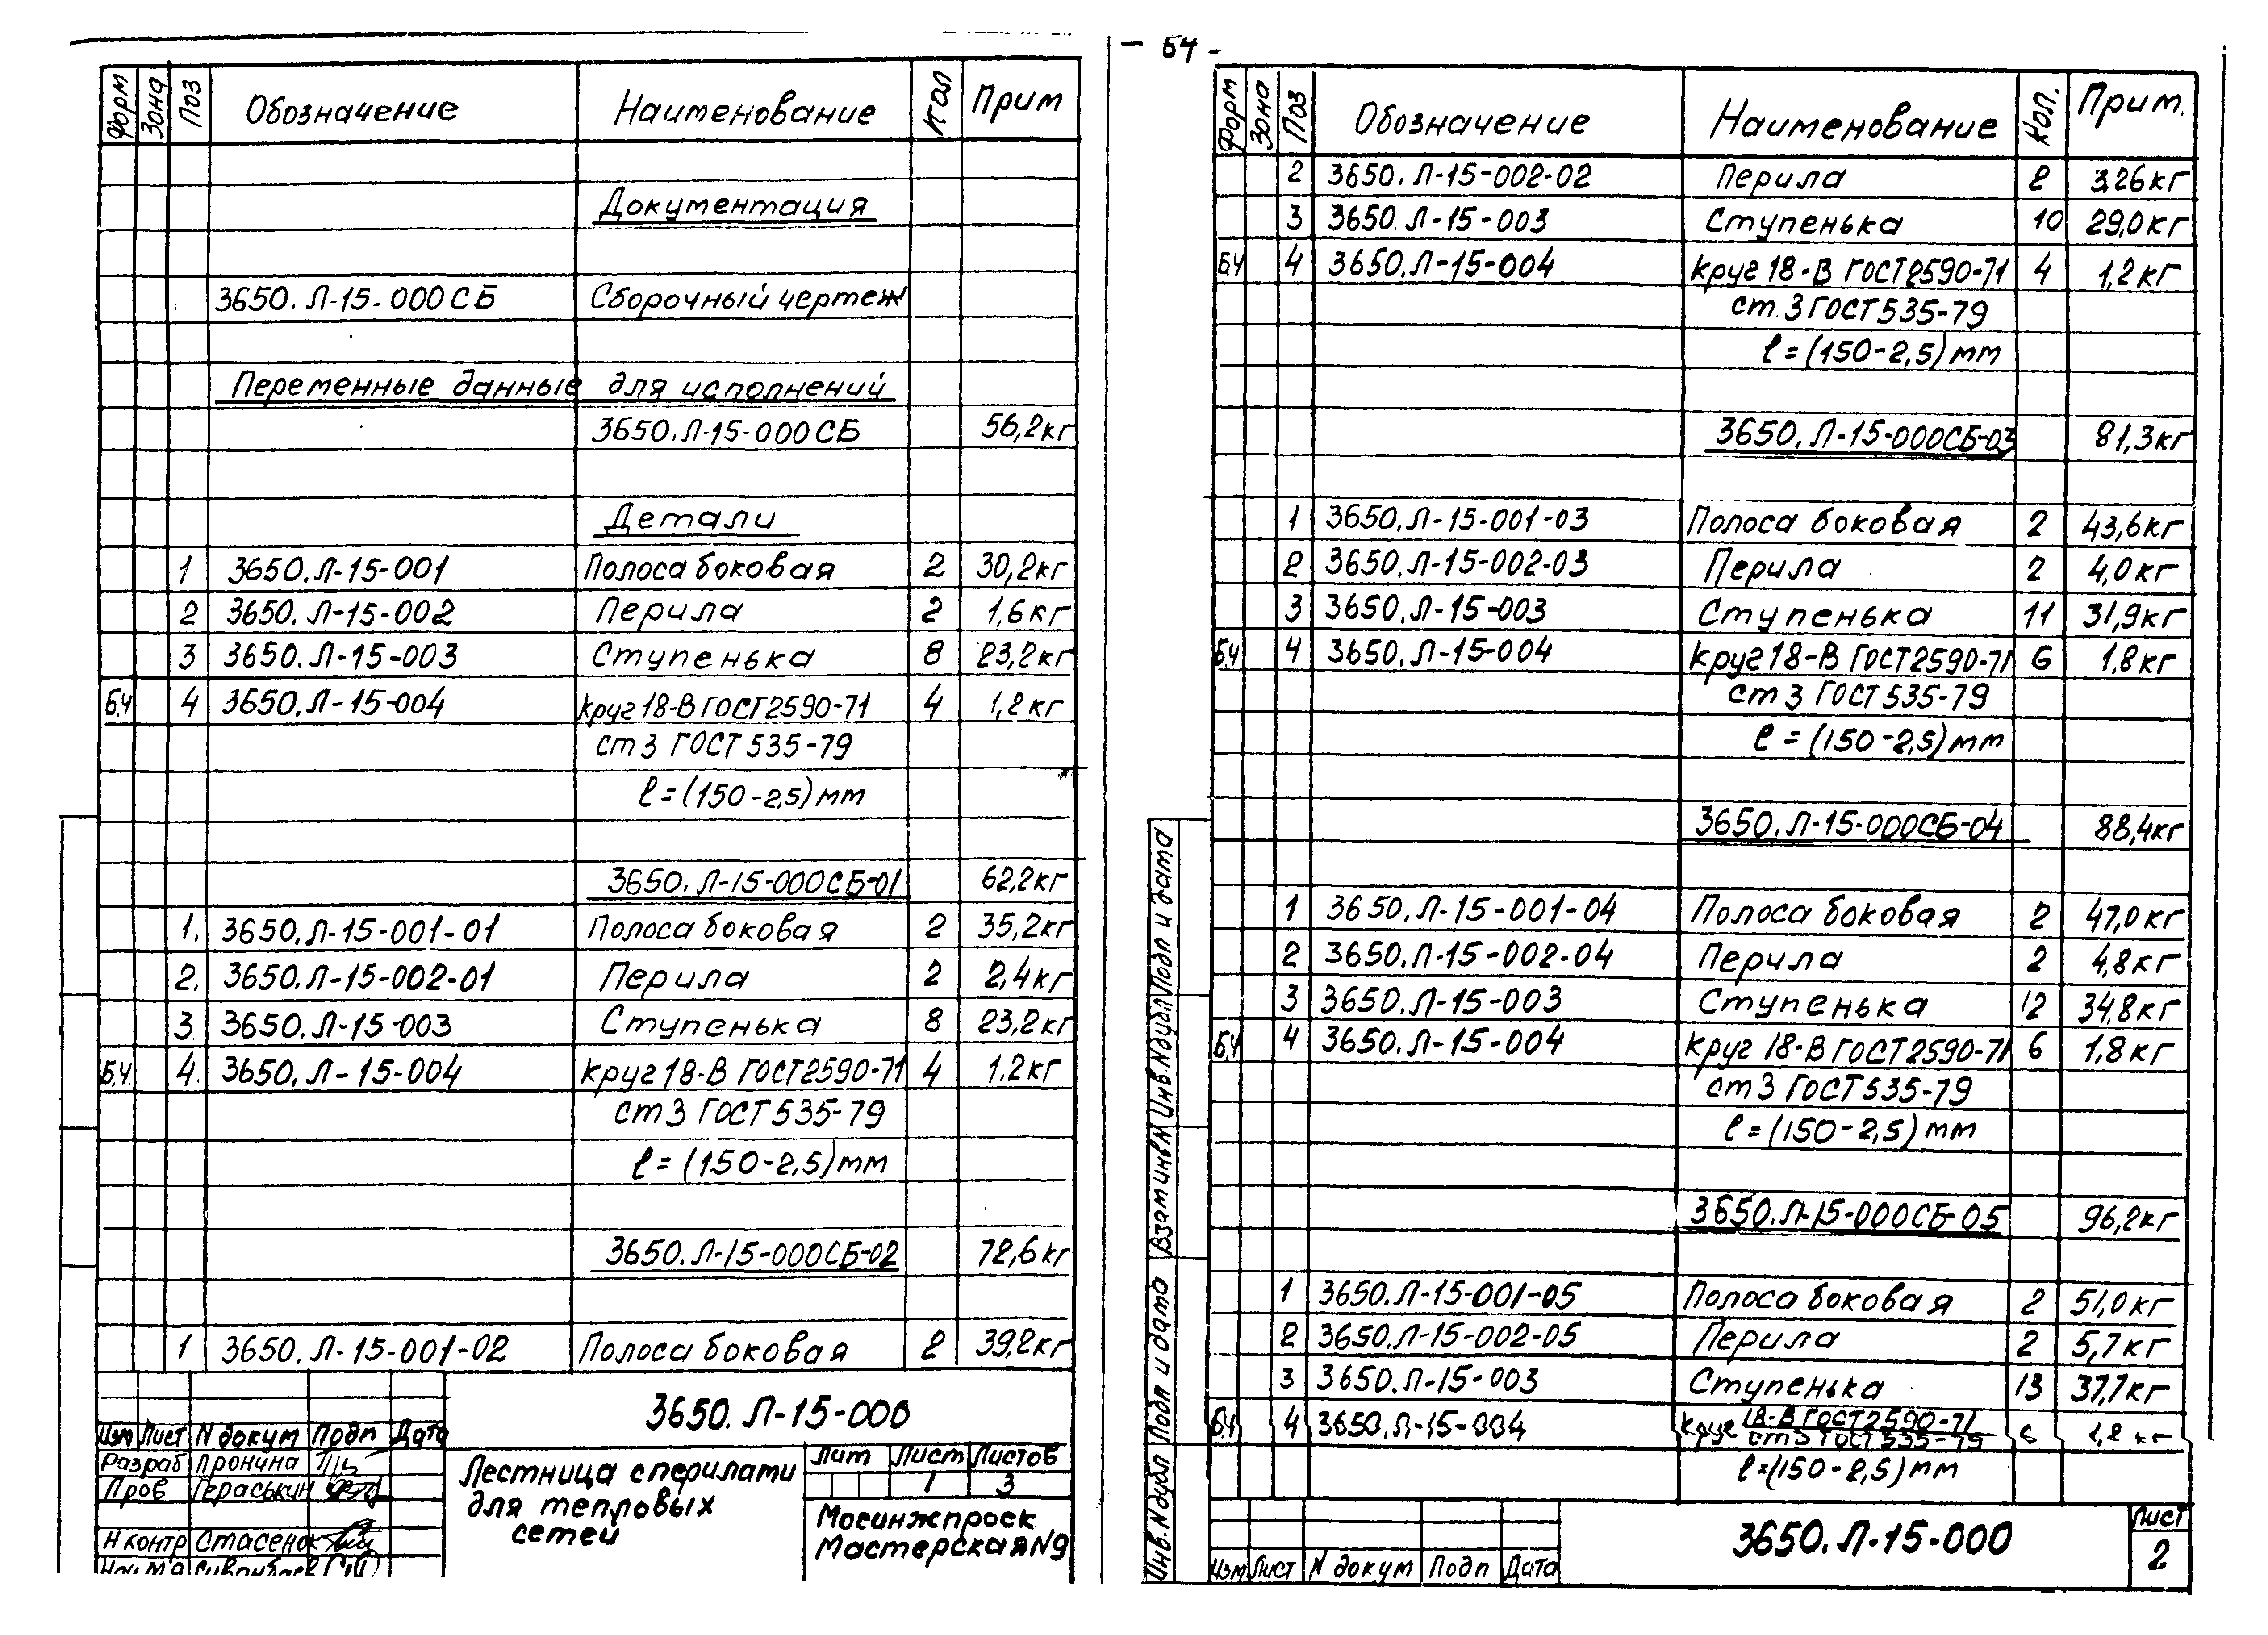 - 54 -
Форм Зона Поз Обозначение Наименование Кол Прим
Документация
3650.Л-15-000СБ Сборочный чертеж
Переменные данные для исполнений
3650.Л-15-000СБ 56,2кг
Детали
1 3650.Л-15-001 Полоса боковая 2 30,2кг
2 3650.Л-15-002 Перила 2 1,6кг
3 3650.Л-15-003 Ступенька 8 23,2кг
Б.Ч 4 3650.Л-15-004 Круг 18-В ГОСТ2590-71 4 1,2кг
ст3 ГОСТ 535-79
ℓ=(150-2,5)мм
3650.Л-15-000СБ-01 62,2кг
1. 3650.Л-15-001-01 Полоса боковая 2 35,2кг
2. 3650.Л-15-002-01 Перила 2 2,4кг
3 3650.Л-15-003 Ступенька 8 23,2кг
Б.Ч. 4. 3650.Л-15-004 Круг 18-В ГОСТ2590-71 4 1.2кг
ст3 ГОСТ 535-79
ℓ=(150-2,5)мм
3650.Л-15-000СБ-02 72,6кг
1 3650.Л-15-001-02 Полоса боковая 2 39,2кг
3650.Л-15-000
Изм Лист N докум Подп Дата
Разраб Пронина
Пров Гераськин
Н контр Стасенок
Лестница с перилами
для тепловых
сетей
Лит Лист Листов
1 3
Мосинжпроек
Мастерская N9
Форм Зона Поз Обозначение Наименование Кол. Прим.
2 3650.Л-15-002-02 Перила 2 3,26кг
3 3650.Л-15-003 Ступенька 10 29,0кг
Б.Ч 4 3650.Л-15-004 Круг 18-В ГОСТ2590-71 4 1,2кг
ст.3 ГОСТ 535-79
ℓ=(150-2,5)мм
3650.Л-15-000СБ-03 81,3кг
1 3650.Л-15-001-03 Полоса боковая 2 43,6кг
2 3650.Л-15-002-03 Перила 2 4,0кг
3 3650.Л-15-003 Ступенька 11 31,9кг
Б.Ч 4 3650.Л-15-004 Круг 18-В ГОСТ2590-71 6 1,8кг
ст3 ГОСТ 535-79
ℓ=(150-2,5)мм
3650.Л-15-000СБ-04 88,4кг
1 3650.Л-15-001-04 Полоса боковая 2 47,0кг
2 3650.Л-15-002-04 Перила 2 4,8кг
3 3650.Л-15-003 Ступенька 12 34,8кг
Б.Ч 4 3650.Л-15-004 Круг 18-В ГОСТ2590-71 6 1,8кг
ст3 ГОСТ 535-79
ℓ=(150-2,5)мм
3650.Л-15-000СБ-05 96,2кг
1 3650.Л-15-001-05 Полоса боковая 2 51,0кг
2 3650.Л-15-002-05 Перила 2 5,7кг
3 3650.Л-15-003 Ступенька 13 37,7кг
Б.Ч 4 3650.Л-15-004 Круг 18-В ГОСТ2590-71 6 1,8 кг
ст3 ГОСТ 535-79
ℓ=(150-2,5)мм
Инв.N дубл Подп и дата Взам инв N Инв.N дубл Подп и дата
Изм Лист N докум Подп Дата
3650.Л-15-000
Лист
2